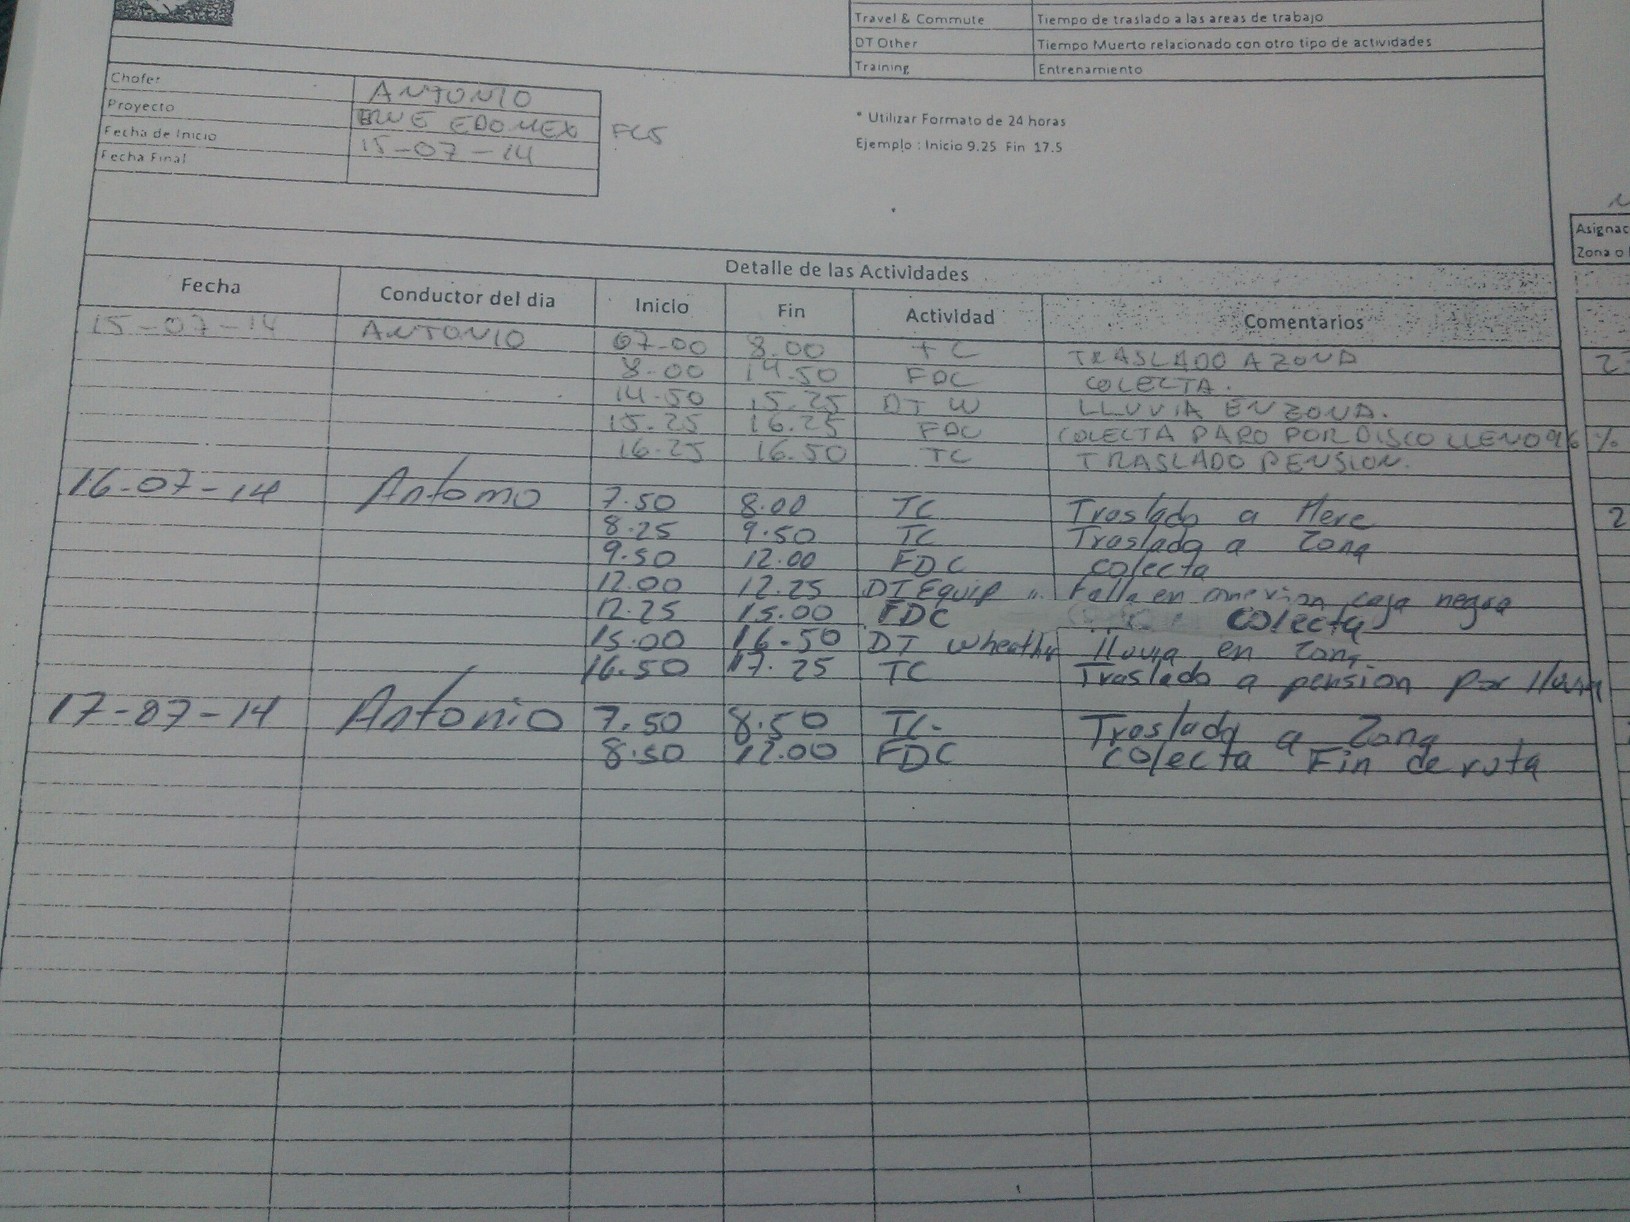 Travel & Commute Tiempo de traslado a las areas de trabajo
DT Other Tiempo Muerto relacionado con otro tipo de actividades
Training Entrenamiento
Chofer ANTONIO
Proyecto EDOMEX
Fecha de Inicio 15-07-14
Fecha Final
* Utilizar Formato de 24 horas
Ejemplo : Inicio 9.25 Fin 17.5
Asignac
Zona o
Detalle de las Actividades
Fecha Conductor del dia Inicio Fin Actividad Comentarios
15-07-14 ANTONIO 07-00 8.00 TC TRASLADO A ZONA
8-00 14.50 FDC COLECTA.
14-50 15.25 DT W LLUVIA EN ZONA.
15.25 16.25 FDC COLECTA PARO POR DISCO LLENO 96 %
16-25 16.50 TC TRASLADO PENSION.
16-07-14 Antonio 7.50 8.00 TC Traslado a Here
8.25 9.50 TC Traslado a Zona
9.50 12.00 FDC colecta
12.00 12.25 DT Equip Falla en caja negra
12.25 15.00 FDC Colecta
15.00 16.50 DT Wheathr lluvia en Zona.
16.50 17.25 TC Traslado a pension por lluvia
17-07-14 Antonio 7.50 8.50 TC- Traslado a Zona
8.50 12.00 FDC Colecta Fin de ruta